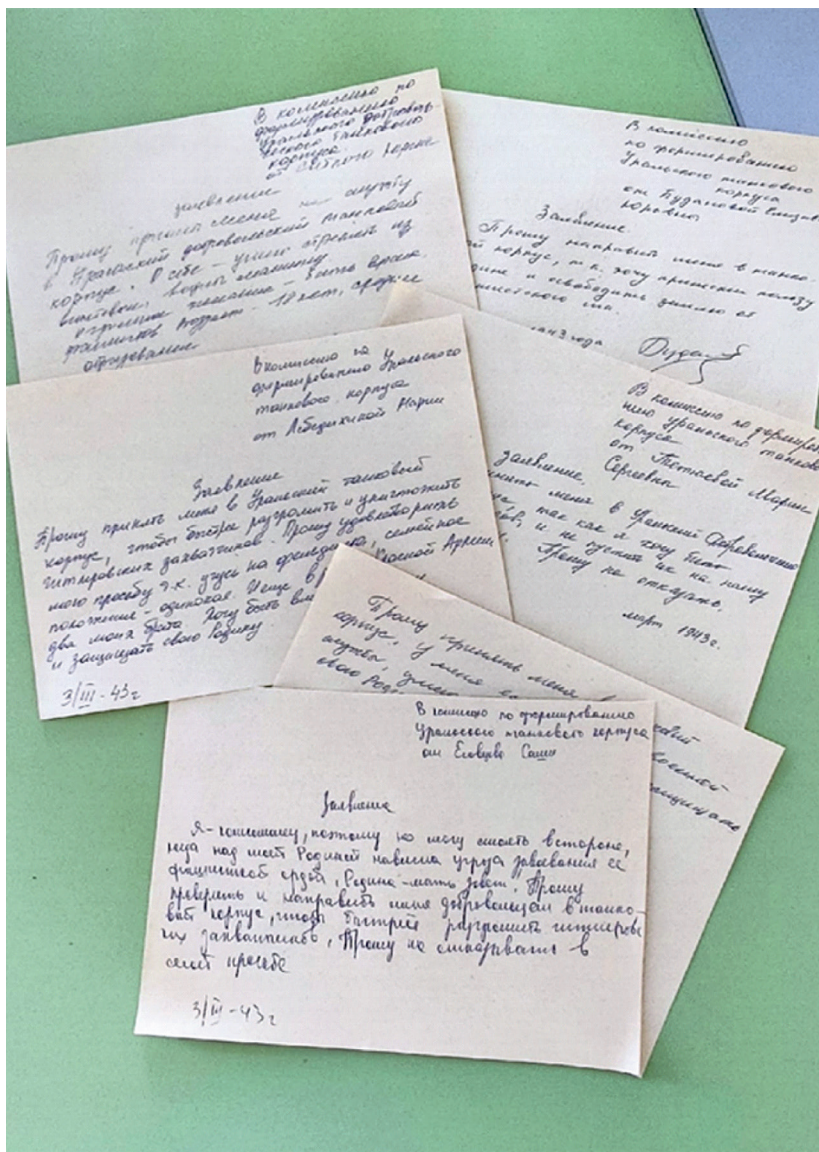 В комиссию по
формированию
Уральского доброволь-
ческого танкового
корпуса.
от
заявление
Прошу принять меня на службу
в Уральский добровольческий танковый
корпус. О себе – умею стрелять из
винтовки, водить машину.
огромное желание – бить врага.
фашистов Возраст – 18 лет, среднее
образование
В комиссию
по формированию
Уральского танкового
корпуса
от Будановой Елизав
Юровны
Заявление.
Прошу направить меня в танко-
й корпус, т.к. хочу принести пользу
дине и освободить землю от
шистского
1943 года
В комиссию по
формированию Уральского
танкового корпуса
от Лебедихиной Марии
Заявление
Прошу принять меня в Уральский танковый
корпус, чтобы быстрее разгромить и уничтожить
гитлеровских захватчиков. Прошу удовлетворить
мою просьбу т.к. учусь на фельдшера, семейное
положение – одинокая. И еще в Красной Армии
два моих брата. Хочу быть вм
и защищать свою Родину.
3/III-43г
В комиссию по формирова
нию уральского танково
корпуса
от Марии
Сергеевны
Заявление.
меня в Уральский Добровольческ
так как я хочу бить
и не пустить их на нашу
Прошу не отказать.
март 1943г.
Прошу принять меня в
корпус. У меня
службы, умею
свою Род
военной
защищать
В комиссию по формированию
Уральского танкового корпуса
от Еловцева Саши
Заявление
Я – комсомолец, поэтому не могу стоять в стороне,
когда над моей Родиной нависла угроза завоевания ее
фашистской ордой, Родина-мать зовет. Прошу
проверить и направить меня добровольцем в танко-
вый корпус, чтобы быстрей разгромить гитлеровс
ких захватчиков, Прошу не отказывать в
моей просьбе
3/III-43г